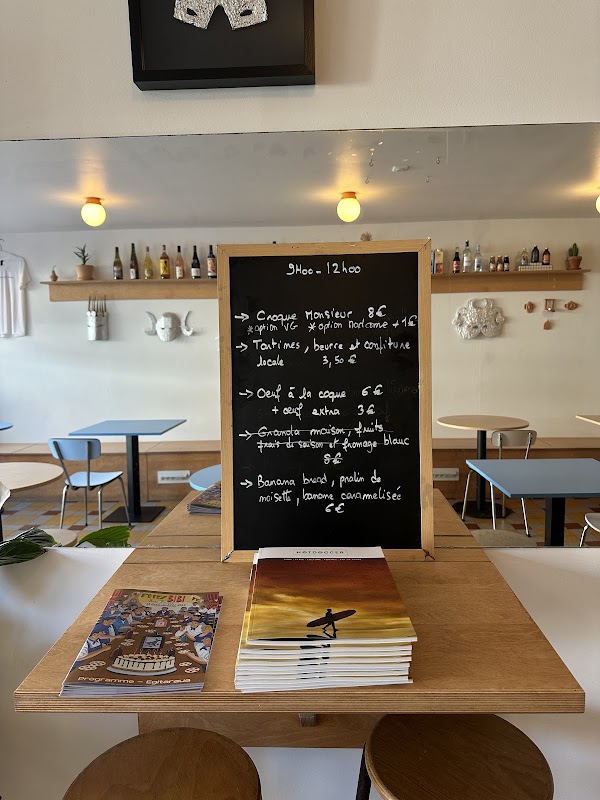 9H00 - 12H00
→ Croque Monsieur 8€
*option VG *option Madame + 1€
→ Tartines, beurre et confiture
locale 3,50 €
→ Oeuf à la coque 6€
+ oeuf extra 3€
→ Granola maison, fruits
frais de saison et fromage blanc
8€
→ Banana bread, pralin de
noisette, banane caramélisée
6€
HOTDOGGER
BIBI
programme - Egitaraua